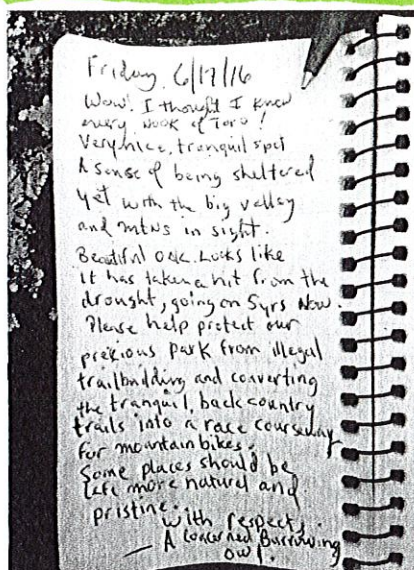 Friday 6/17/16
Wow! I thought I knew
every nook of Toro!
Very nice, tranquil spot
A sense of being sheltered
yet with the big valley
and mtns in sight.
Beautiful oak. Looks like
it has taken a hit from the
drought, going on 5yrs now.
Please help protect our
precious park from illegal
trailbuilding and converting
the tranquil, back country
trails into a race courseway
for mountain bikes.
Some places should be
left more natural and
pristine.
With respect,
— A concerned Burrowing
owl.